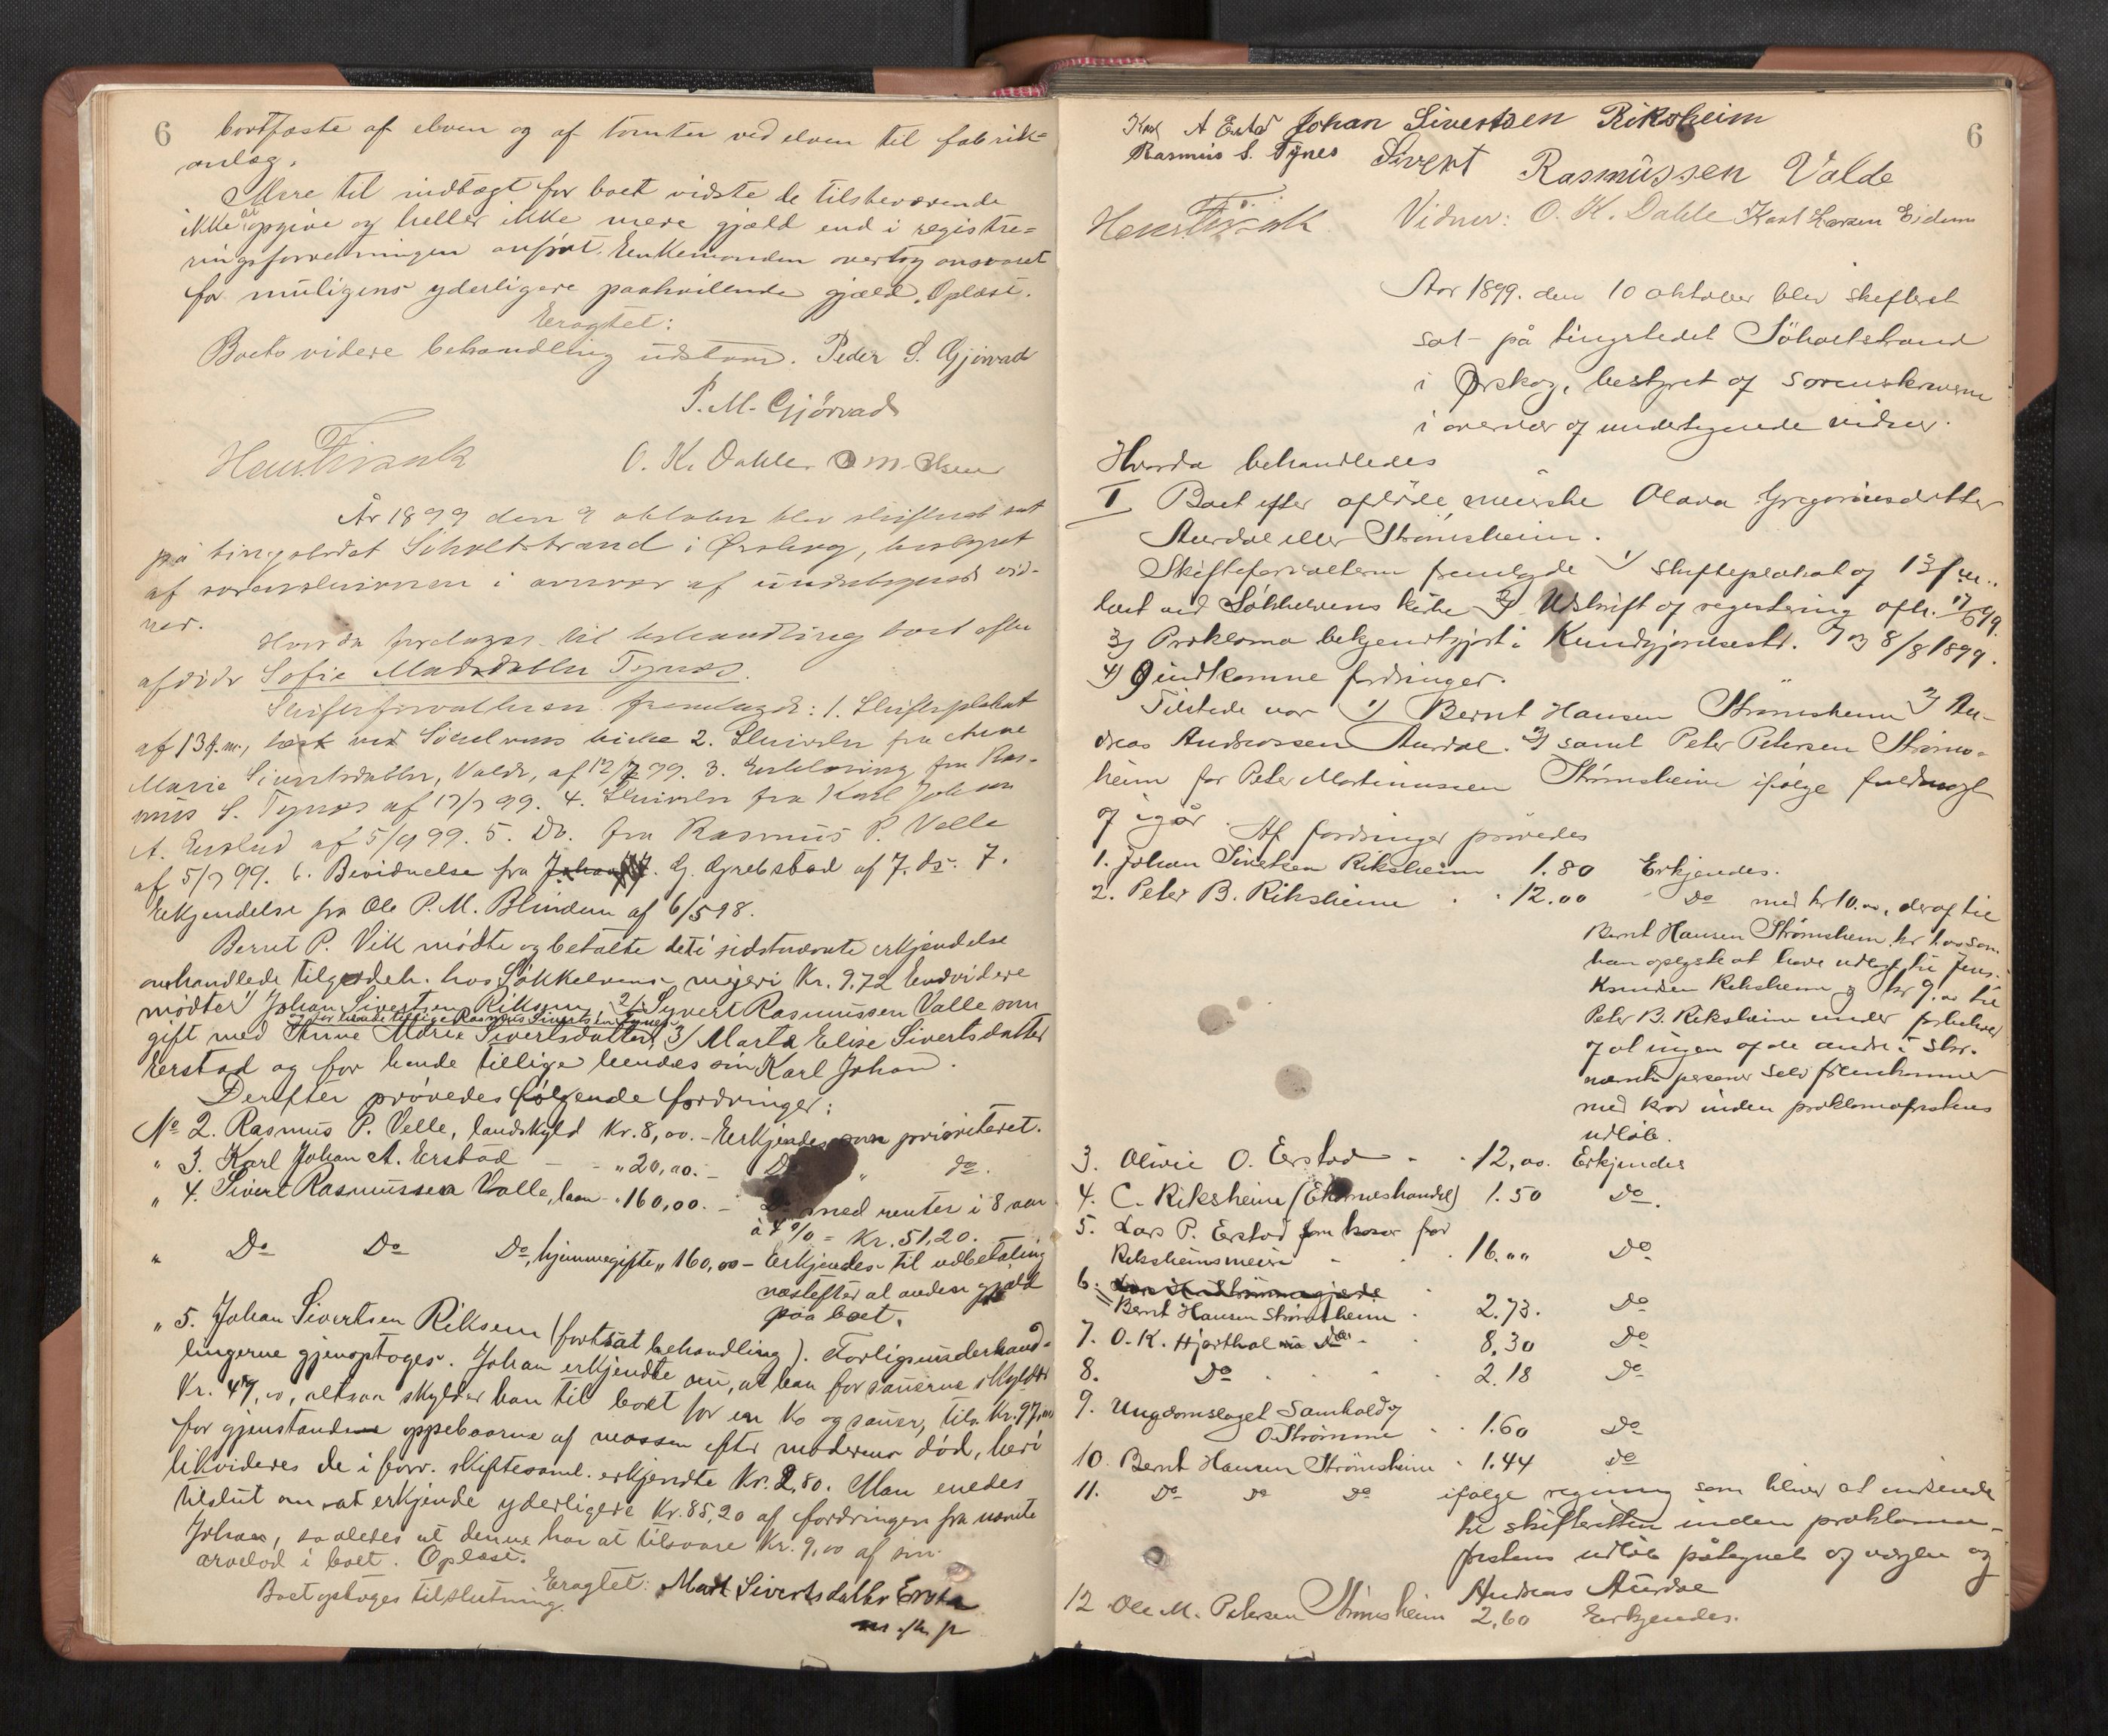 6
bortfæste af elven og af tomter ved elven til fabrik=
anlæg.
Mere til indtægt for boet vidste de tilstedeværende
ikke at opgive og heller ikke mere gjæld end i registre=
ringsforretningen anført. Enkemanden overtog ansvaret
for muligens yderligere paahvilende gjæld. Oplæst.
Eragtet:
Boets videre behandling udstaar. Peder S. Gjørvad
P. M. Gjørvad
O. K. Dahle O M. Olsen
År 1899 den 9 oktober blev skifteret sat
på tingstedet Søholtstrand i Ørskog, bestyret
af sorenskriveren i overvær af undertegnede vid-
ner.
Hvorda foretages til behandling boet efter
afdøde Sofie Madsdatter Tynes.
Skifteforvalteren fremlagde: 1. Skifteplakat
af 13 f.m., læst ved Søkelvens kirke 2. Skrivelse fra Anne
Marie Sivertsdatter, Valde, af 12/7 99. 3. Erklæring fra Ras-
mus S. Tynes af 17/7 99. 4. Skrivelse fra Karl Johan
A. Erstad af 5/9 99. 5. Do. fra Rasmus P. Velle
af 5/7 99. 6. Bevidnelse fra G. Grebstad af 7. ds. 7.
Erkjendelse fra Ole P. M. Blindem af 6/5 98.
Bernt P. Vik mødte og betalte det i sidstnævnte erkjendelse
omhandlede tilgodeh. hos Søkkelvens mejeri Kr. 9.72 Endvidere
mødte 1/ Johan Sivertsen Riksem 2/ Syvert Rasmussen Valle som
og for hende tillige Rasmus Sivertsen Tynes
gift med Anne Marie Sivertsdatter, 3/ Marta Elise Sivertsdatter
Erstad og for hende tillige hendes søn Karl Johan.
Derefter prøvedes følgende fordringer:
No 2. Rasmus P. Velle, landskyld Kr. 8,00. - Erkjendes som prioriteret.
" 3. Karl Johan A. Erstad - - " 20,00. - Do " do.
" 4. Sivert Rasmussen Valle, laan - " 160,00. - Do med renter i 8 aar
à 4 % = Kr. 51,20.
" Do Do Do, hjemmegifte " 160,00 - Erkjendes til udbetaling
næstefter al anden gjæld
paa boet.
" 5. Johan Sivertsen Riksem (fortsat behandling). Forligsunderhand-
lingerne gjenoptoges. Johan erkjendte nu, at han for sauerne skylder
Kr. 47,00, altsaa skylder han til boet for en ko og sauer, tils. Kr. 97,00
for gjenstandene oppebaarne af massen efter moderens død, heri
likvideres de i forr. skiftesaml. erkjendte Kr. 2,80. Man enedes
tilslut om at erkjende yderligere Kr. 85,20 af fordringen fra nævnte
Johan, saaledes at denne har at tilsvare Kr. 9,00 af sin
arvelod i boet. Oplæst.
Eragtet: Mart Sivertsdatter Ersta
Boet optoges til slutning.
m. f. p
6
Karl A Erstad Johan Sivertsen Riksheim
Rasmus S. Tynes Sivert Rasmussen Valde
Vidner: O. K. Dahle Karl Larsen Eidem
Aar 1899. den 10 oktober blev skifteret
sat på tingstedet Søholtstrand
i Ørskog, bestyret af sorenskriveren
i overvær af undertegnede vidner.
Hvorda behandledes
I Boet efter afdøde, enerske Olava Gregoriusdatter
Aurdal eller Strømsheim.
Skifteforvalteren fremlagde 1) Skifteplakat og 13 f.m.
læst ved Søkkelvens kirke 2) Udskrift af registrering afh. 17/6 99.
3) Proklama bekjendtgjort i Kundgjørelsestid. 7 og 8/8 1899.
4) 9 indkomne fordringer.
Tilstede var 1) Bernt Hansen Strømsheim 2) An-
dreas Andreassen Aurdal. 3) samt Peter Petersen Strøms-
heim for Peter Martinussen Strømsheim ifølge fuldmagt
af igår.
Af fordringer prøvedes
1. Johan Sivertsen Riksheim 1.80 Erkjendes.
2. Peter B. Riksheim . . 12.00 Do med kr 10.00, deraf til
Bernt Hansen Strømsheim kr 1.00 som
han oplyste at have udlagt til Jens
Knudsen Riksheim og kr 9.00 til
Peter B. Riksheim under forbehold
af at ingen af de andre i skr.
nævnte personer selv fremkommer
med krav inden proklamafristens
udløb.
3. Olivie O. Erstad - . 12,00. Erkjendes
4. C. Riksheim (Ekornæshandel) 1.50 Do.
5. Lars P. Erstad som kaser for
Riksheimsmeieri - . . 16.00 Do
6. Bernt Hansen Strømsheim . 2.73. Do
7. O. K. Hjorthol . . 8,30 Do
8. Do . . . . 2.18 Do
9. Ungdomslaget Samhold og
O Strømme . . 1.60 Do
10. Bernt Hansen Strømsheim . 1.44 Do
11. Do Do Do ifølge regning som bliver at indsende
til skifteretten inden proklama-
fristens udløb påtegnet af værgen og
Andreas Aurdal
12 Ole M. Petersen Strømsheim 2,60 Erkjendes.